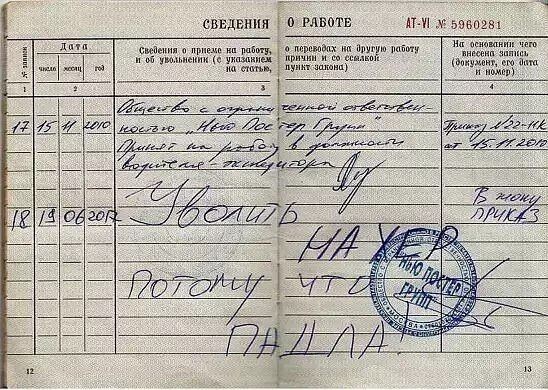 СВЕДЕНИЯ О РАБОТЕ АТ-VI № 5960281
№ записи
Дата
число месяц год
Сведения о приеме на работу, о переводах на другую работу
и об увольнении (с указанием причин и со ссылкой
на статью, пункт закона)
На основании чего
внесена запись
(документ, его дата
и номер)
1 2 3 4
Общество с ограниченной ответствен-
ностью „Нью Постер Групп"
17 15 11 2010 Принят на работу в должности
водителя-экспедитора
Приказ №22-НК
от 15.11.2010
18 19 06 2017 УВОЛИТЬ
НАХЕР
ПОТОМУ ЧТО
ПАДЛА!
В жопу
ПРИКАЗ
НЬЮ ПОСТЕР
ГРУПП
МОСКВА
12 13